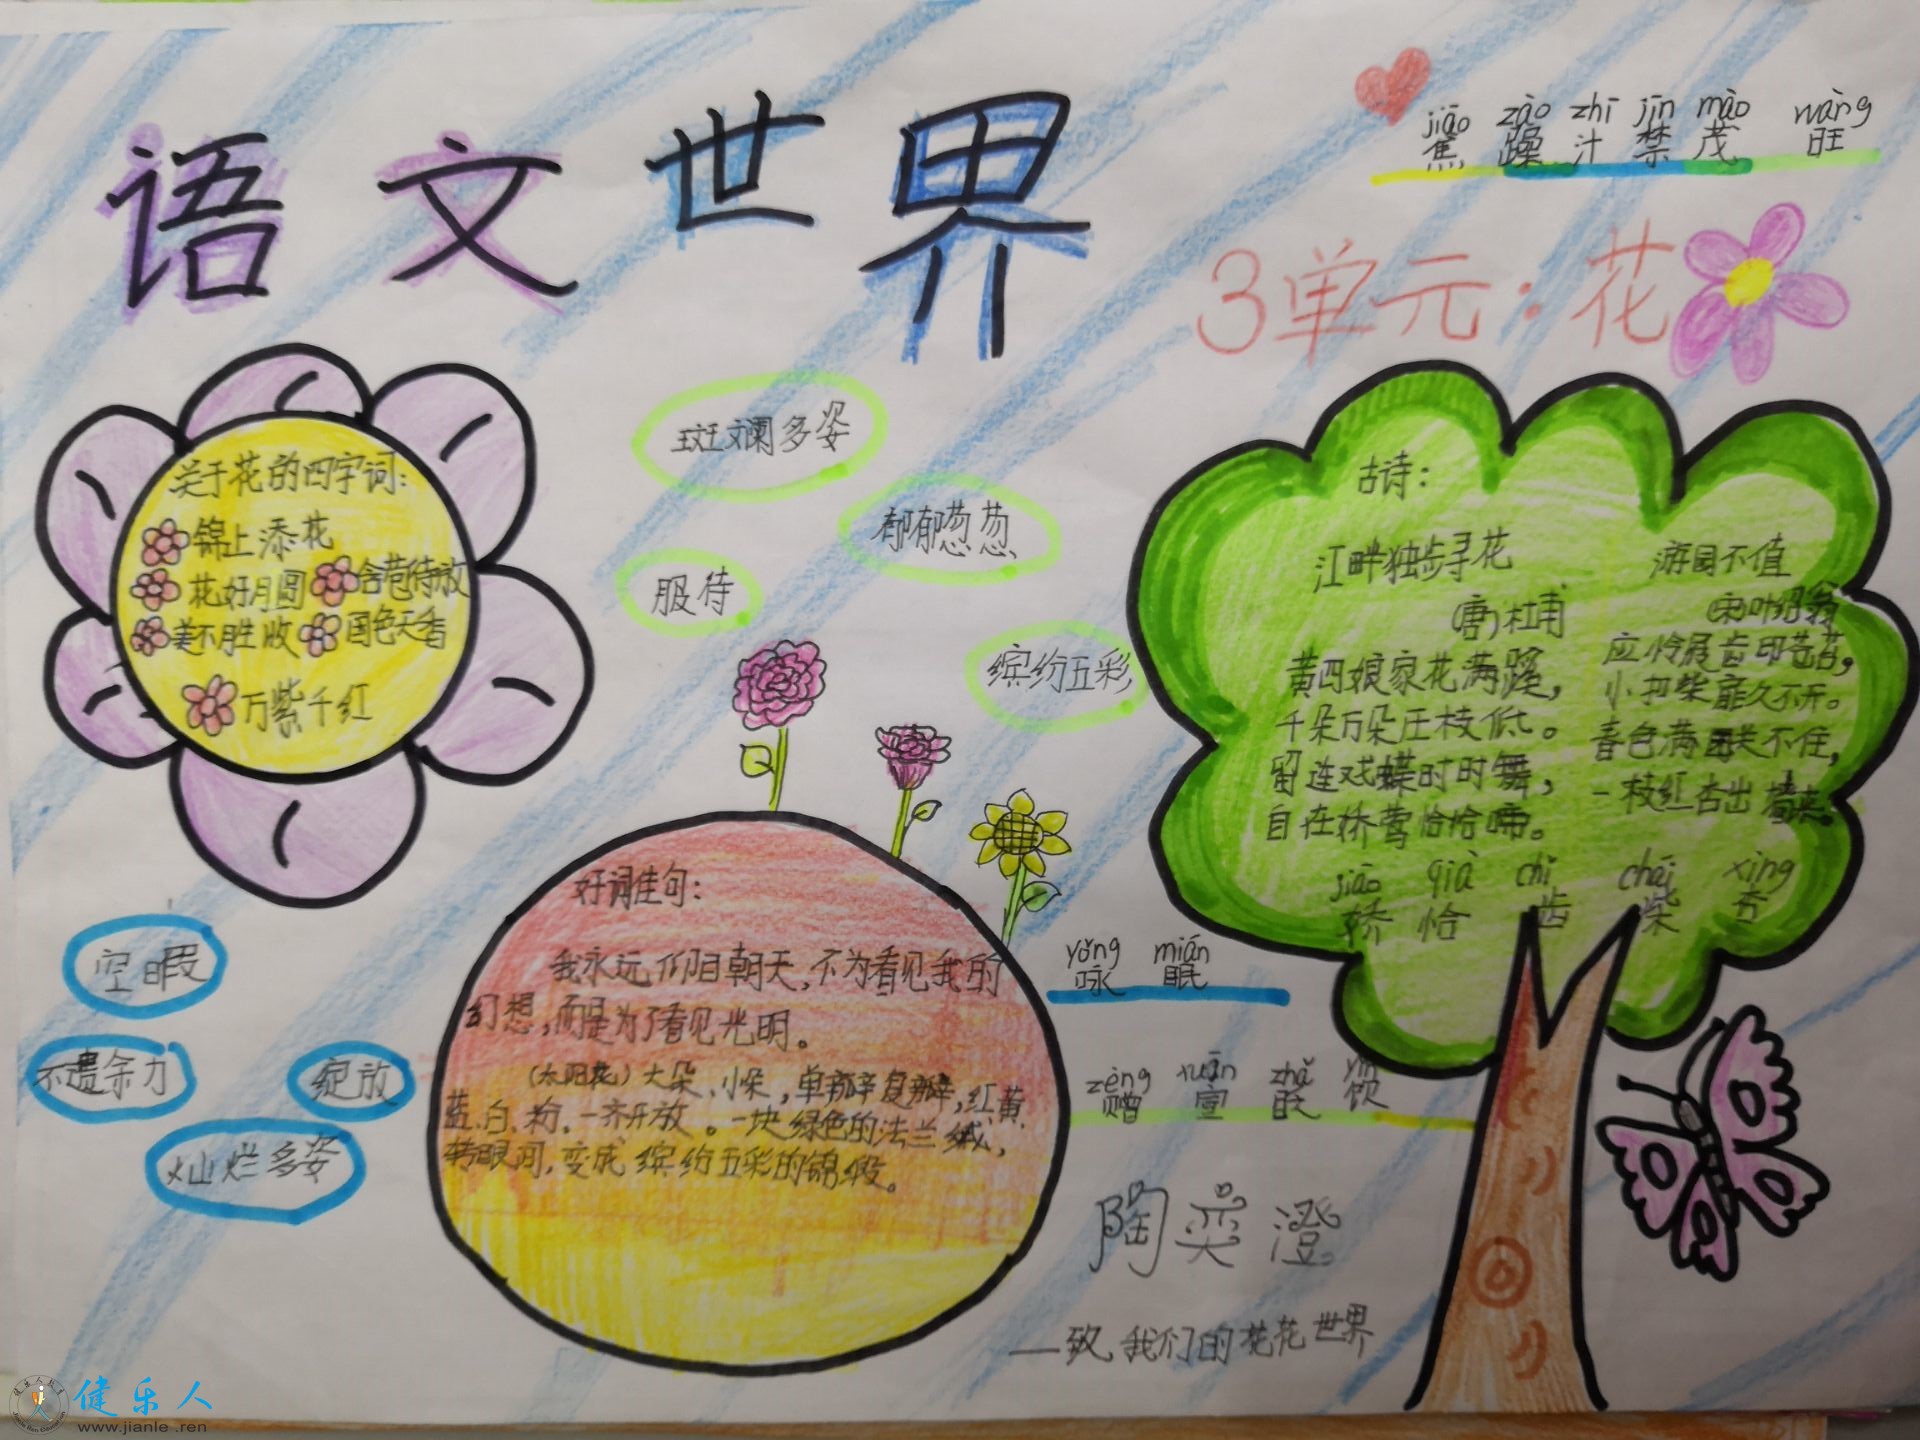 语文世界
jiāo zào zhī jīn mào wàng
蕉 躁 汁 禁 茂 旺
3单元·花
关于花的四字词:
锦上添花
花好月圆 含苞待放
美不胜收 国色天香
万紫千红
斑斓多姿
郁郁葱葱
服侍
缤纷五彩
古诗:
江畔独步寻花
(唐)杜甫
黄四娘家花满蹊,
千朵万朵压枝低。
留连戏蝶时时舞,
自在娇莺恰恰啼。
游园不值
(宋)叶绍翁
应怜屐齿印苍苔,
小扣柴扉久不开。
春色满园关不住,
一枝红杏出墙来。
jiāo qià chǐ chái xìng
娇 恰 齿 柴 杏
好词佳句:
我永远仰起朝天,不为看见我的
幻想,而是为了看见光明。
(太阳花)大朵、小朵,单瓣复瓣,红、黄、
蓝、白、粉,一齐开放。一块绿色的法兰绒,
转眼间,变成缤纷五彩的锦缎。
空暇
不遗余力
绽放
灿烂多姿
yǒng mián
咏 眠
zèng xuān zhǎ yǐn
赠 宣 眨 饮
陶奕澄
—致我们的花花世界
健乐人
www.jianle.ren